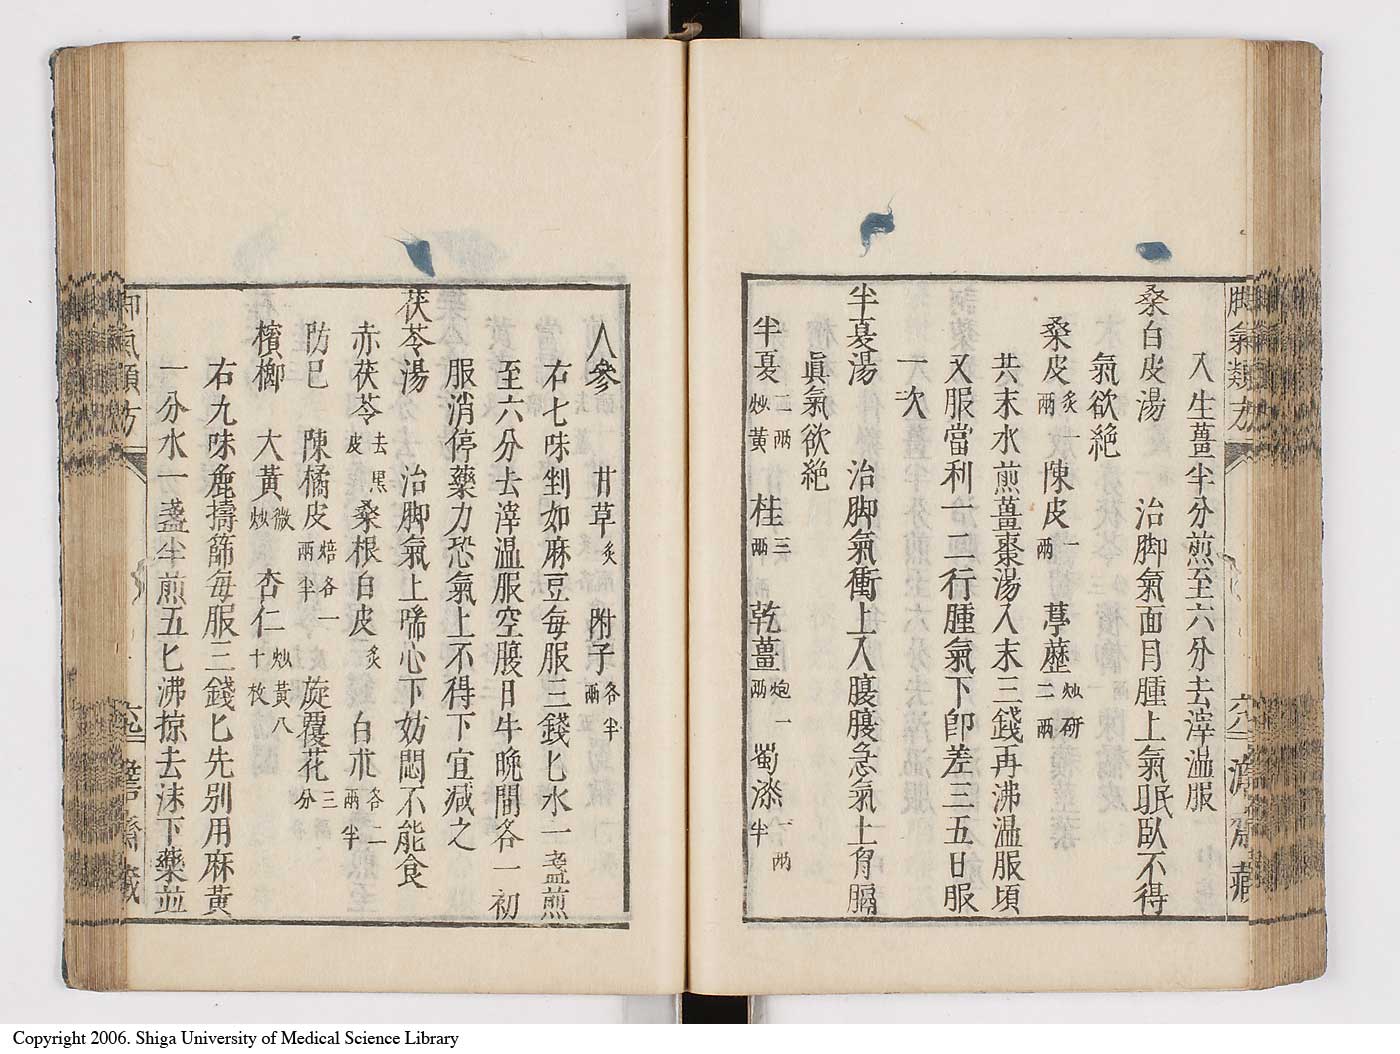 脚氣類方
六一
澹齋藏
入生薑半分煎至六分去滓温服
桑白皮湯 治脚氣面目腫上氣眠臥不得
氣欲絶
桑皮炙一兩 陳皮一兩 葶藶炒研二兩
共末水煎薑棗湯入末三錢再沸温服頃
又服當利一二行腫氣下卽差三五日服
一次
半夏湯 治脚氣衝上入腹腹急氣上胷膈
眞氣欲絶
半夏二兩炒黄 桂三兩 乾薑炮一兩 蜀漆一兩半
人參 甘草炙 附子各半兩
右七味剉如麻豆每服三錢匕水一盞煎
至六分去滓温服空腹日午晩間各一初
服消停藥力恐氣上不得下宜减之
茯苓湯 治脚氣上喘心下妨悶不能食
赤茯苓去黒皮 桑根白皮炙 白朮各二兩半
防己 陳橘皮焙各一兩半 旋覆花三分
檳榔 大黃微炒 杏仁炒黃八十枚
右九味麁擣篩每服三錢匕先别用麻黃
一分水一盞半煎五匕沸掠去沫下藥並
脚氣類方
六一
澹齋藏
Copyright 2006. Shiga University of Medical Science Library